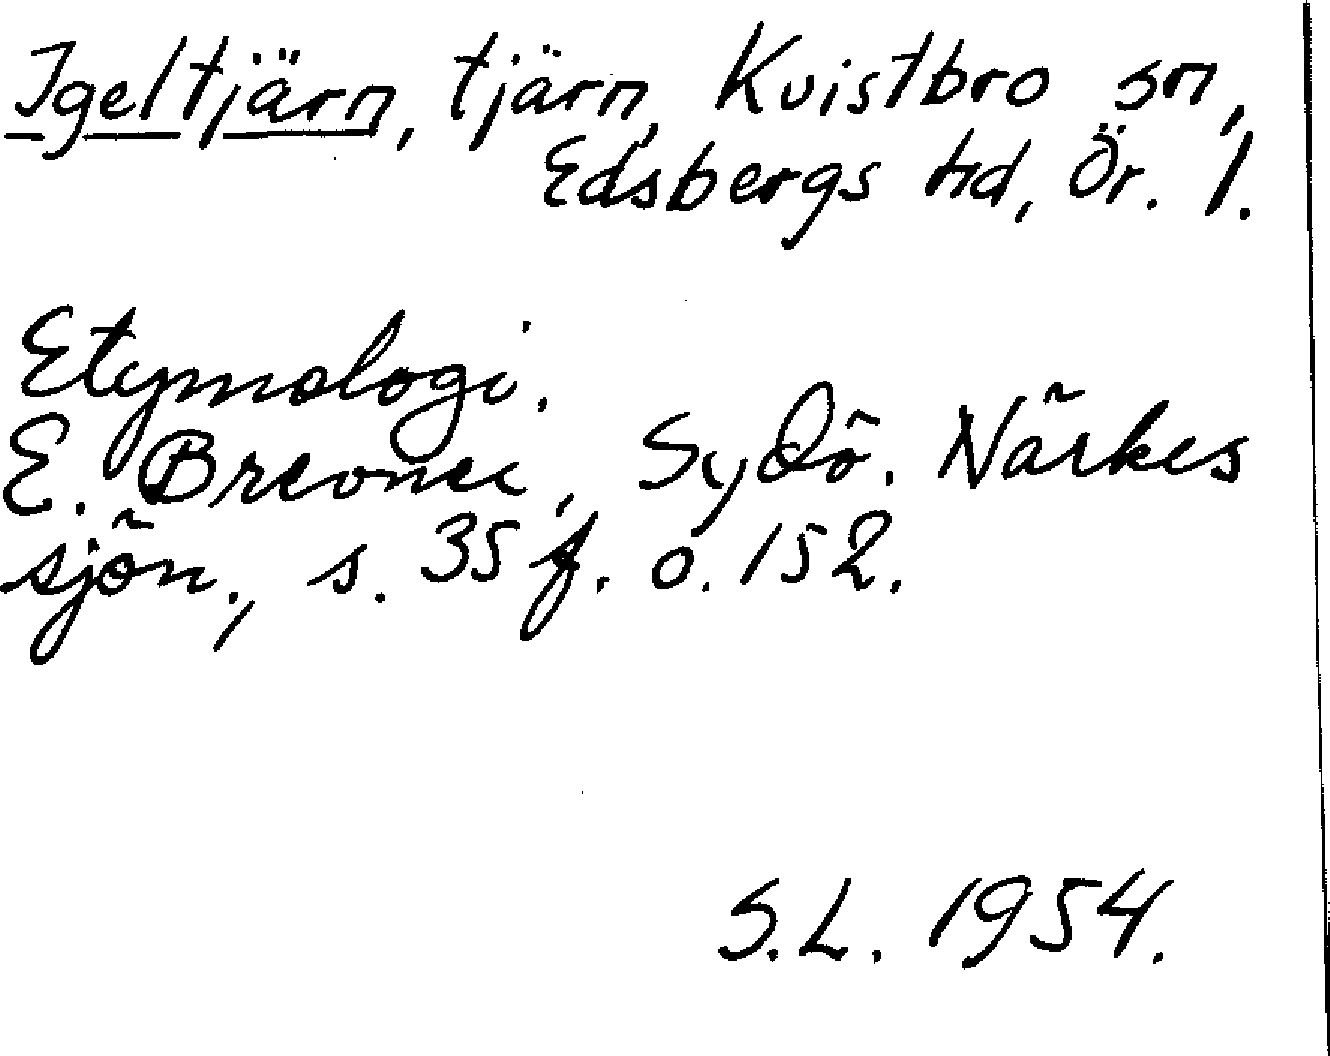 Igeltjärn, tjärn, Kvistbro sn,
Edsbergs hd, Ör. l.
Etymologi.
E. Brevner, Sydö. Närkes
sjön., s. 35 f. o. 152.
S.L. 1954.